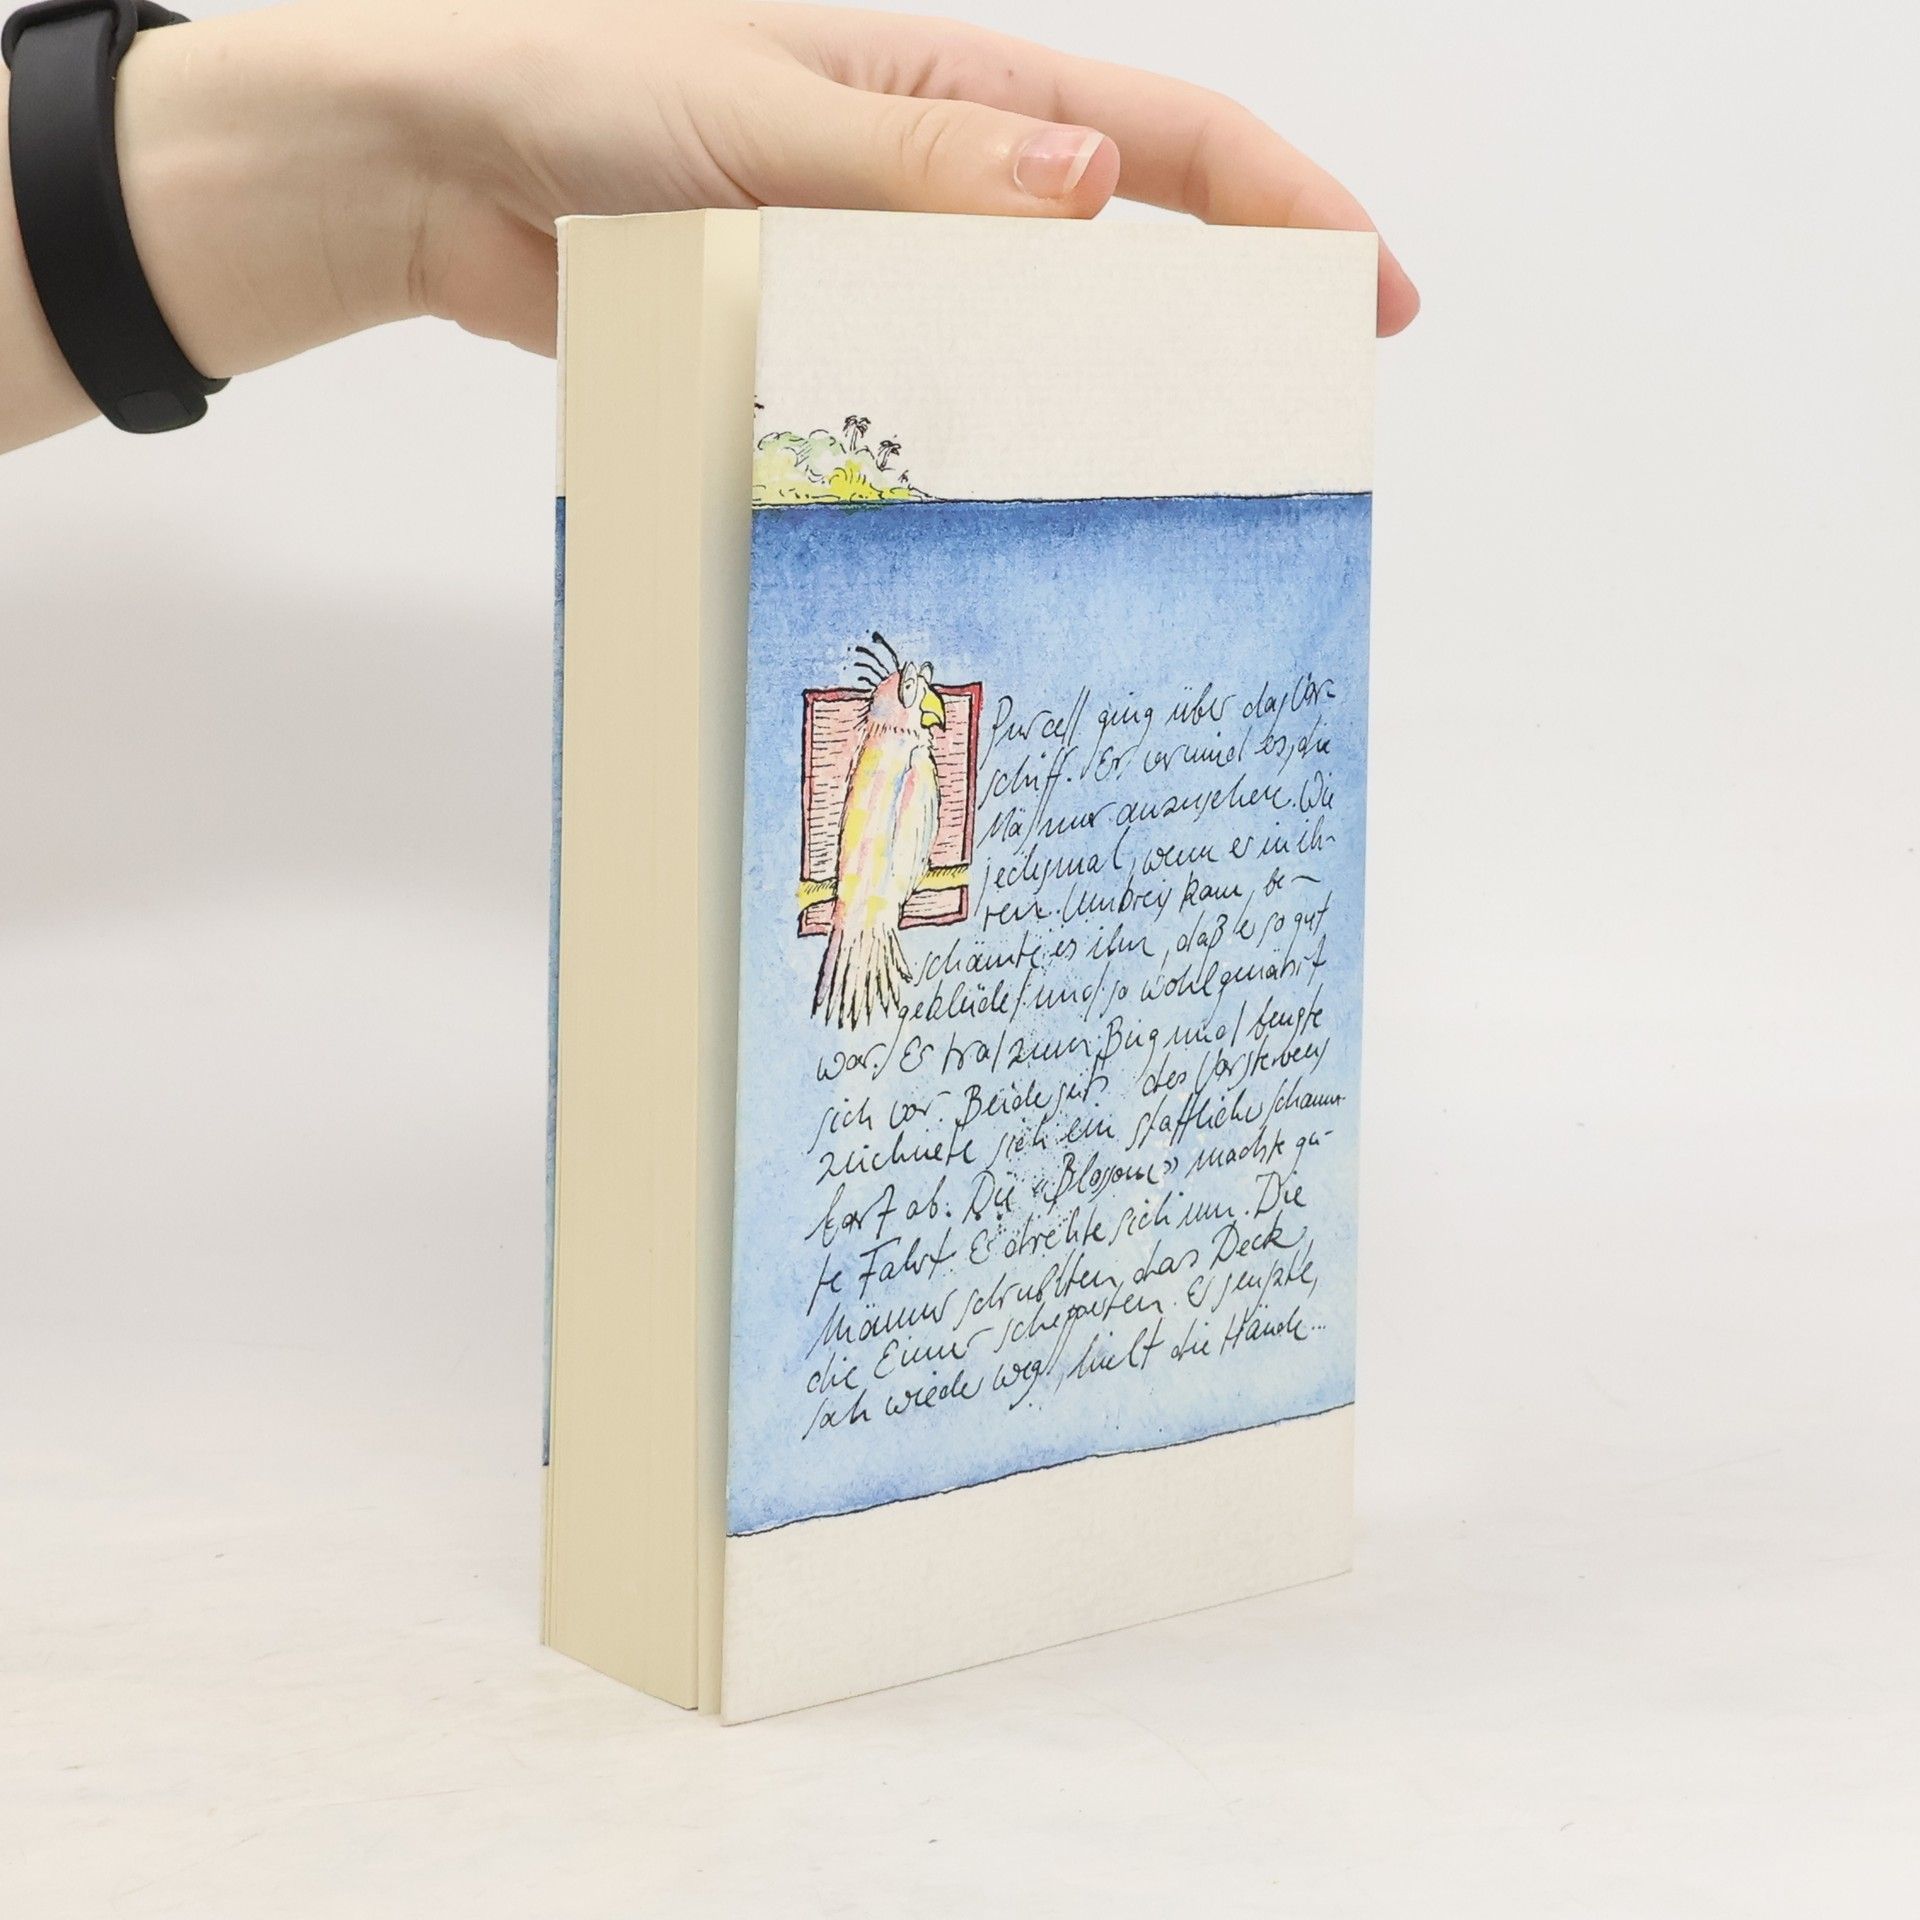 Purcell ging über das Vor-
schiff. Er vermied es, die
Männer anzusehen. Wie
jedesmal, wenn er in ih-
ren Umkreis kam, be-
schämte es ihn, daß er so gut
gekleidet und so wohlgenährt
war. Er trat zum Bug und beugte
sich vor. Beiderseits des Vorstevens
zeichnete sich ein stattlicher Schaum-
bart ab. Die «Blossom» machte gu-
te Fahrt. Er drehte sich um. Die
Männer schrubbten das Deck,
die Eimer schepperten. Er seufzte,
sah wieder weg, hielt die Hände...